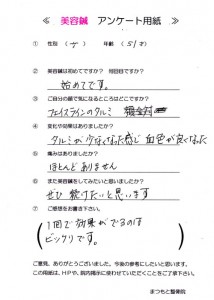 ≪ 美容鍼 アンケート用紙 ≫
① 性別（ 女 ） 年齢（ 51才）
② 美容鍼は初めてですか？ 何回目ですか？
始めてです。
③ ご自分の顔で気になるところはどこですか？
フェイスラインのタルミ
④ 変化や効果はありましたか？
タルミが少なくなった感じ 血色が良くなった
⑤ 痛みはありましたか？
ほとんどありません
⑥ また美容鍼をしてみたいと思いましたか？
ぜひ続けたいと思います
⑦ ご感想をお書き下さい
1回で効果がでるのは
ビックリです。
ご意見、ありがとうございました。今後の参考にしたいと思います。
この用紙は、HPや、院内掲示に使わせていただくことをご了承下さい。
まつもと整体院